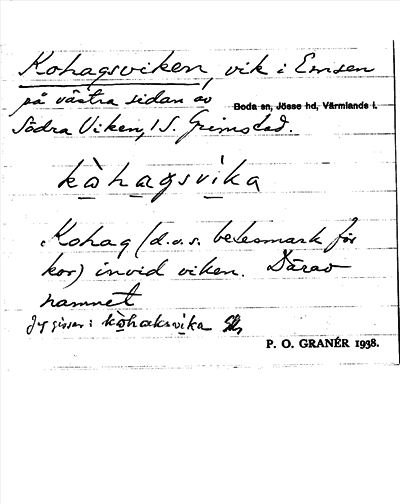 Kohagsviken, vik i Emsen
på västra sidan av Boda sn, Jösse hd, Värmlands l.
Södra Viken, 1 S. Grimstad.
kòhagsvika
Kohag (d.v.s. betesmark för
kor) invid viken. Därav
namnet
Jag gissar: kòhaksvika
P. O. GRANÉR 1938.